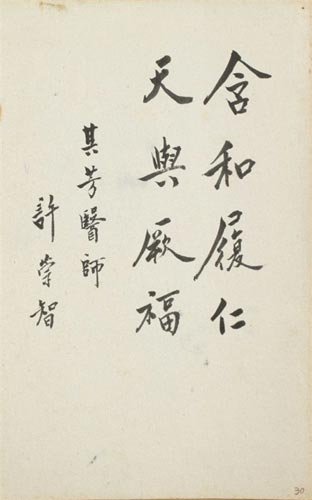 含和履仁
天與厥福
其芳醫師
許榮智
30